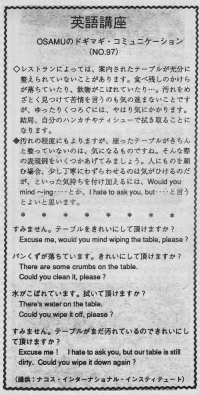 英語講座
OSAMUのドギマギ・コミュニケーション
(NO.97)
◇レストランによっては、案内されたテーブルが充分に
整えられていないことがあります。食べ残しのかけら
が落ちていたり、飲物がこぼれていたり…。汚れをめ
ざとく見つけて苦情を言うのも気の進まないことです
が、ゆったりくつろぐには、やはり気にかかります。
結局、自分のハンカチやティシューで拭き取ることに
なります。
◆汚れの程度にもよりますが、座ったテーブルがきちん
と整っていないのは、気になるものですね。そんな際
の表現例をいくつかあげてみましょう。人にものを頼
む場合、少し丁寧にわずらわせるのは気がひけるのだ
が、といった気持ちを付け加えるには、Would you
mind ~ing‥‥とか、I hate to ask you, but‥‥と言う
とよいと思います。
* * * * * * *
すみません。テーブルをきれいにして頂けますか?
Excuse me, would you mind wiping the table, please ?
パンくずが落ちています。きれいにして頂けますか?
There are some crumbs on the table.
Could you clean it, please ?
水がこぼれています。拭いて頂けますか?
There's water on the table.
Could you wipe it off, please ?
すみません。テーブルがまだ汚れているのできれいにし
て頂けますか?
Excuse me ! I hate to ask you, but our table is still
dirty. Could you wipe it down again ?
(提供:ナコス・インターナショナル・インスティテュート)